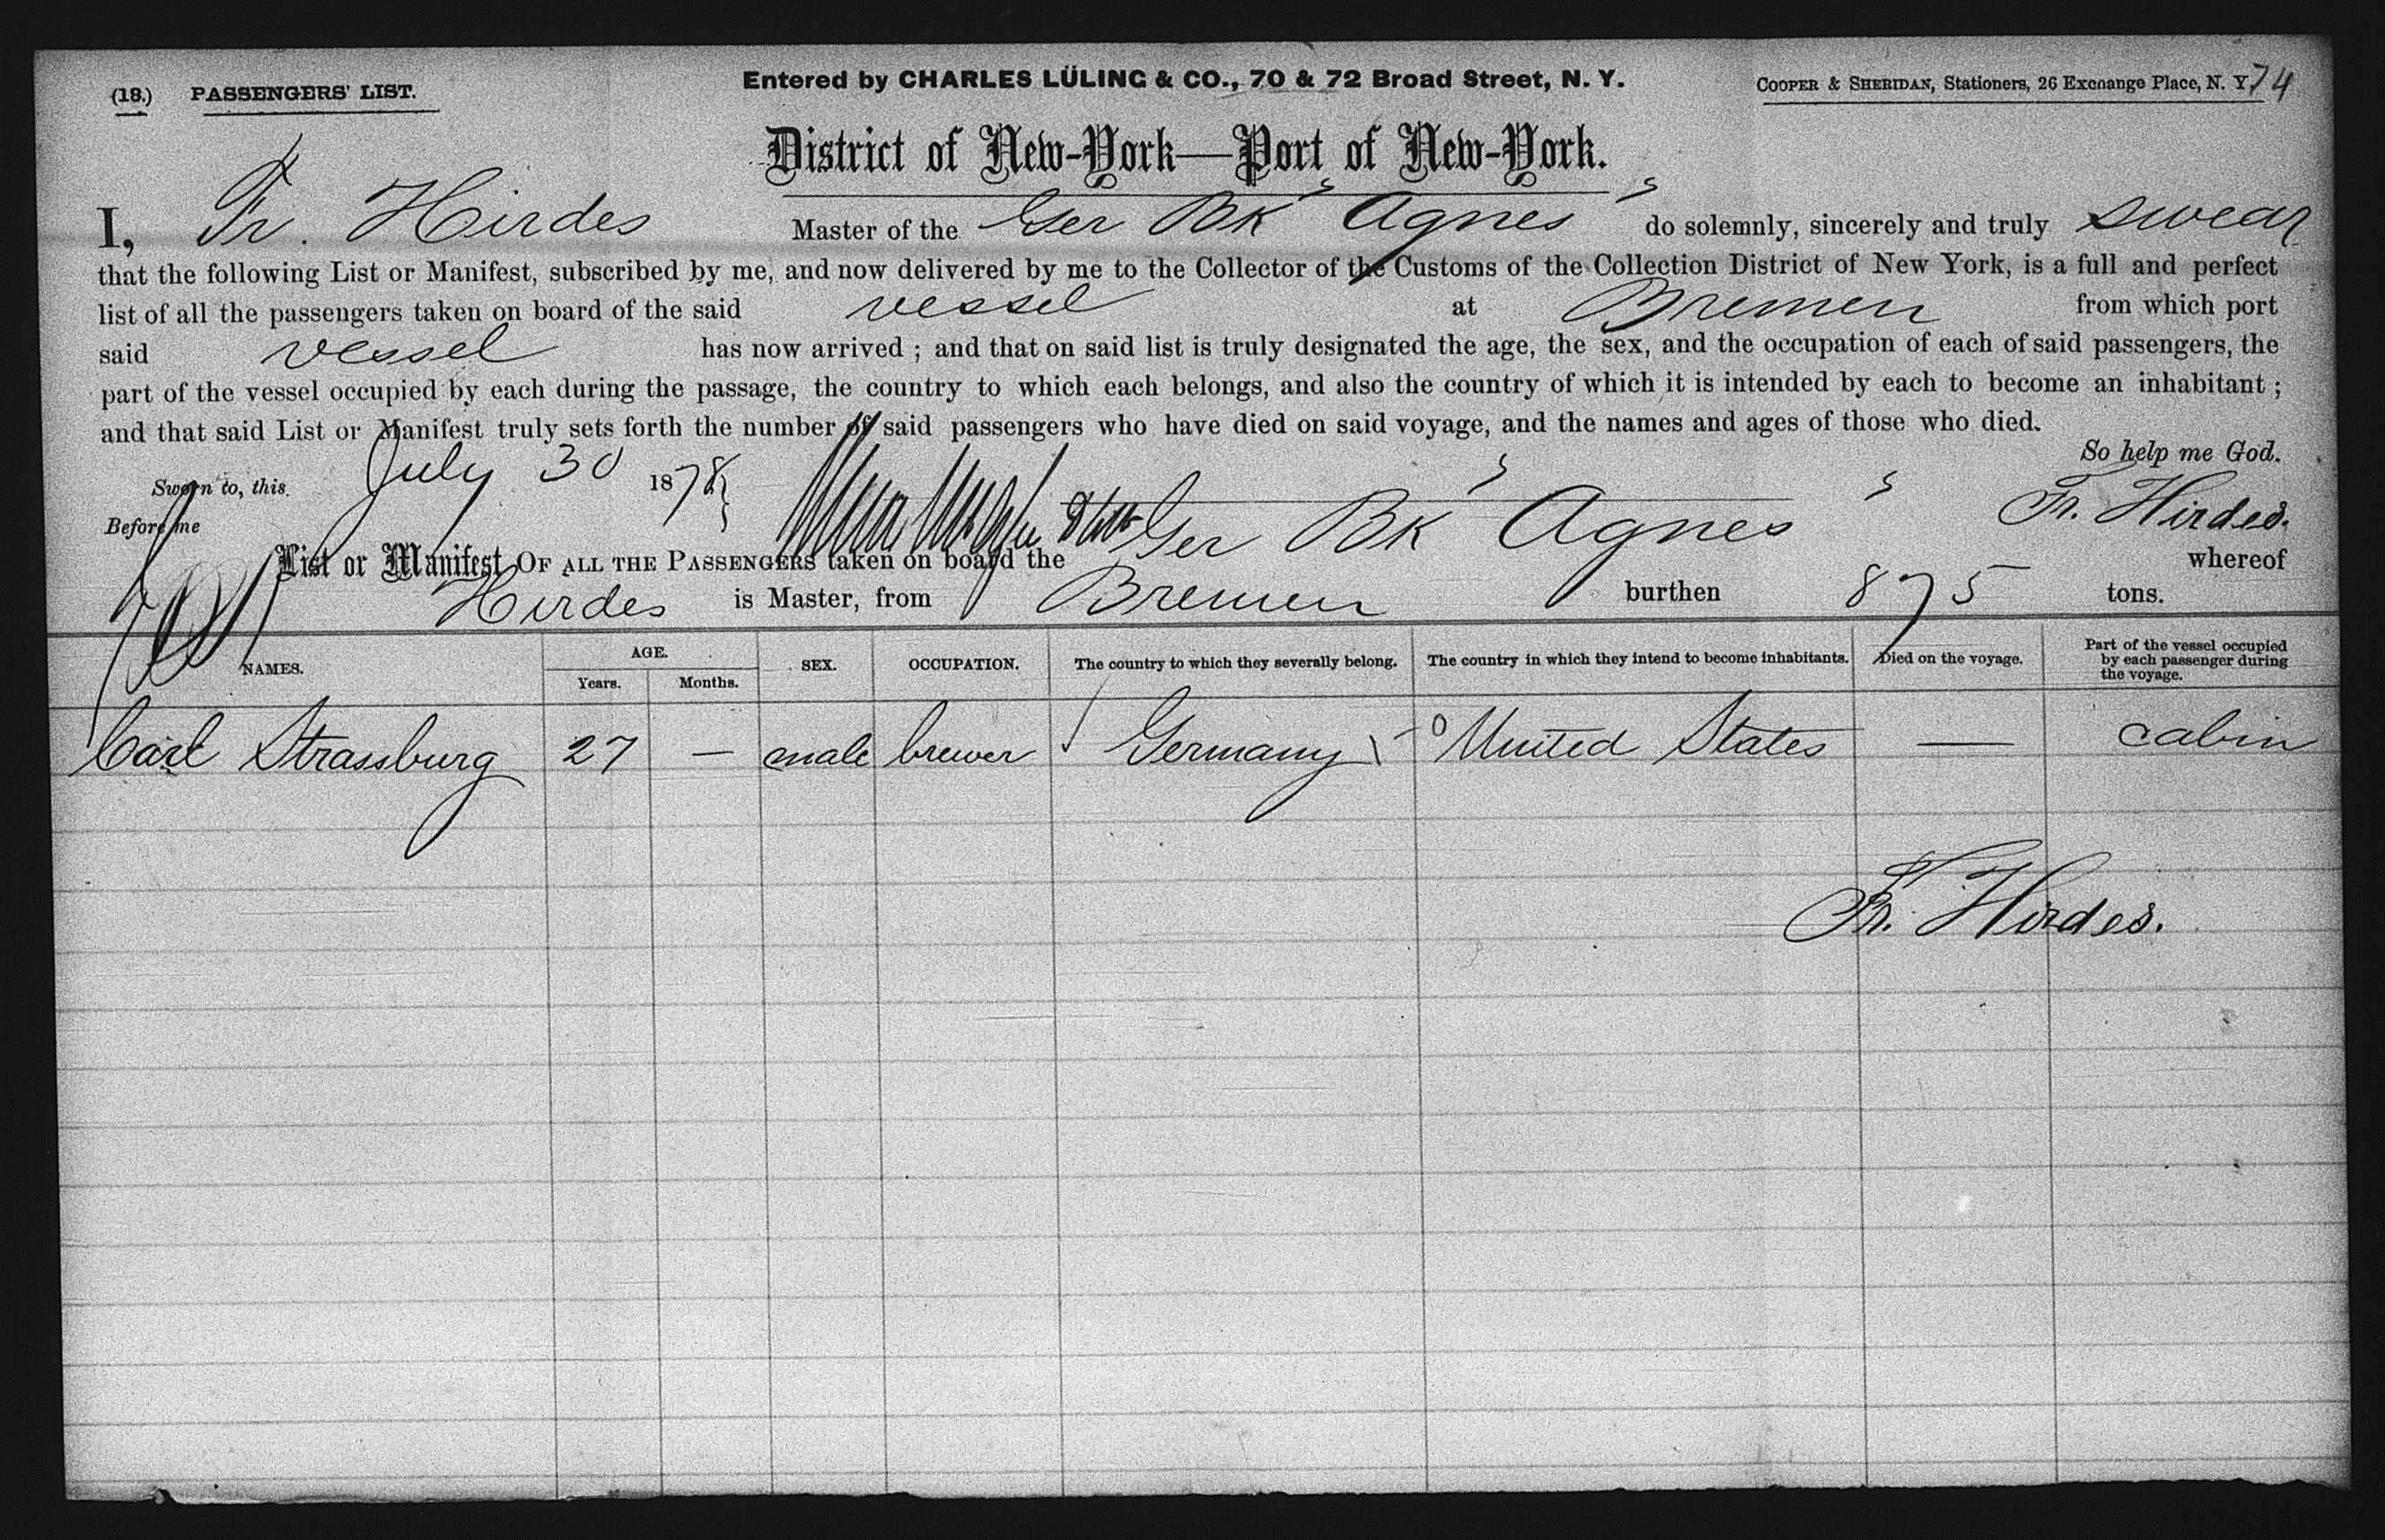 (18.) PASSENGERS' LIST. Entered by CHARLES LÜLING & CO., 70 & 72 Broad Street, N. Y. COOPER & SHERIDAN, Stationers, 26 Exchange Place, N. Y. 74
District of New-York—Port of New-York.
I, Fr. Hirdes Master of the Ger Bk "Agnes" do solemnly, sincerely and truly swear
that the following List or Manifest, subscribed by me, and now delivered by me to the Collector of the Customs of the Collection District of New York, is a full and perfect
list of all the passengers taken on board of the said vessel at Bremen from which port
said vessel has now arrived ; and that on said list is truly designated the age, the sex, and the occupation of each of said passengers, the
part of the vessel occupied by each during the passage, the country to which each belongs, and also the country of which it is intended by each to become an inhabitant ;
and that said List or Manifest truly sets forth the number of said passengers who have died on said voyage, and the names and ages of those who died.
So help me God.
Sworn to, this July 30 1878
Before me Fr. Hirdes.
List or Manifest OF ALL THE PASSENGERS taken on board the Ger Bk "Agnes" whereof
Hirdes is Master, from Bremen burthen 875 tons.
NAMES. AGE. Years. Months. SEX. OCCUPATION. The country to which they severally belong. The country in which they intend to become inhabitants. Died on the voyage. Part of the vessel occupied by each passenger during the voyage.
Carl Strassburg 27 — male brewer Germany United States — cabin
Fr. Hirdes.